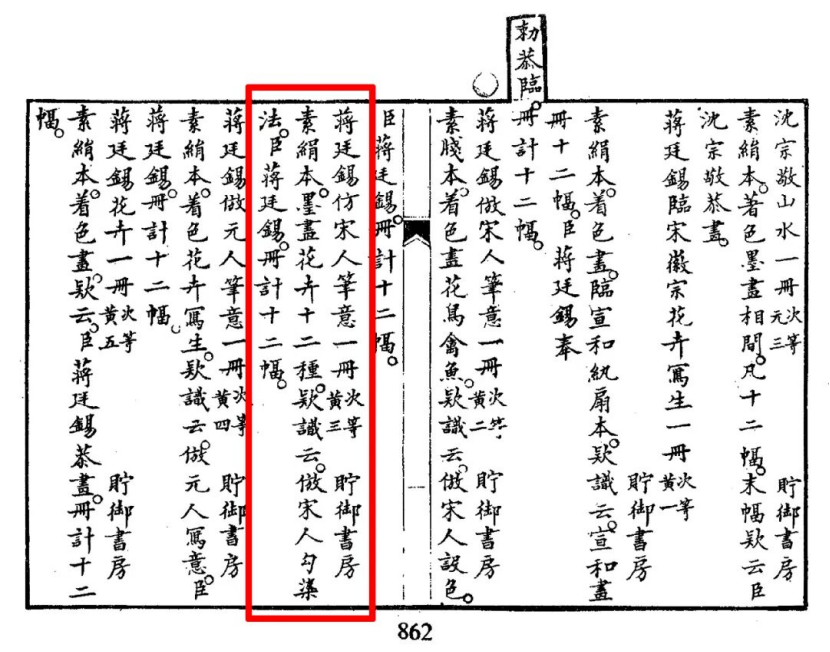 沈宗敬山水一冊 次等元三 貯御書房
素絹本。著色墨畫相間。凡十二幅。末幅欵云臣
沈宗敬恭畫。
蔣廷錫臨宋徽宗花卉寫生一冊 次等黃一
貯御書房
素絹本。着色畫。臨宣和紈扇本。欵識云。宣和畫
冊十二幅。臣蔣廷錫奉
勅恭臨。冊計十二幅。
蔣廷錫倣宋人筆意一冊 次等黃二 貯御書房
素牋本。着色畫花鳥禽魚。欵識云。倣宋人設色。
臣蔣廷錫。冊計十二幅。
蔣廷錫仿宋人筆意一冊 次等黃三 貯御書房
素絹本。墨畫花卉十二種。欵識云。倣宋人勾染
法。臣蔣廷錫。冊計十二幅。
蔣廷錫倣元人筆意一冊 次等黃四 貯御書房
素絹本。着色花卉寫生。欵識云。倣元人寫意。臣
蔣廷錫。冊計十二幅。
蔣廷錫花卉一冊 次等黃五 貯御書房
素絹本。着色畫。欵云。臣蔣廷錫恭畫。冊計十二
幅。
862